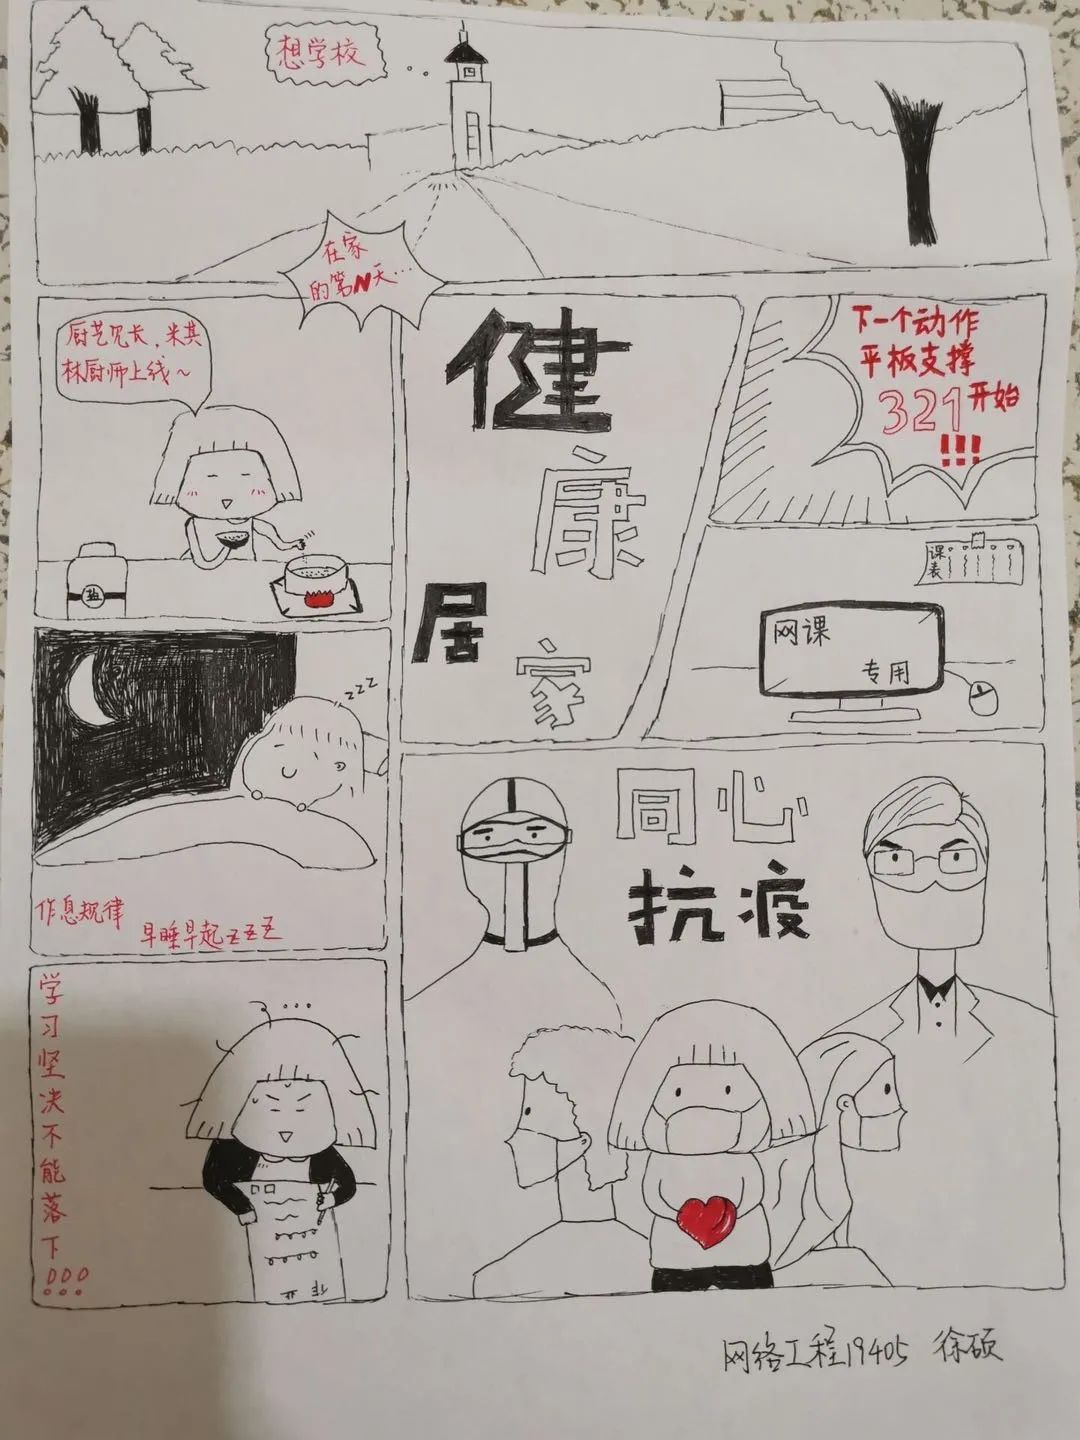 想学校
在家
的第N天...
厨艺见长,米其
林厨师上线~
盐
健
康
居
家
下一个动作
平板支撑
321开始
!!!
课表
网课
专用
zzz
作息规律
早睡早起zzz
学习坚决不能落下!!!
作业
同心
抗疫
网络工程19405 徐硕